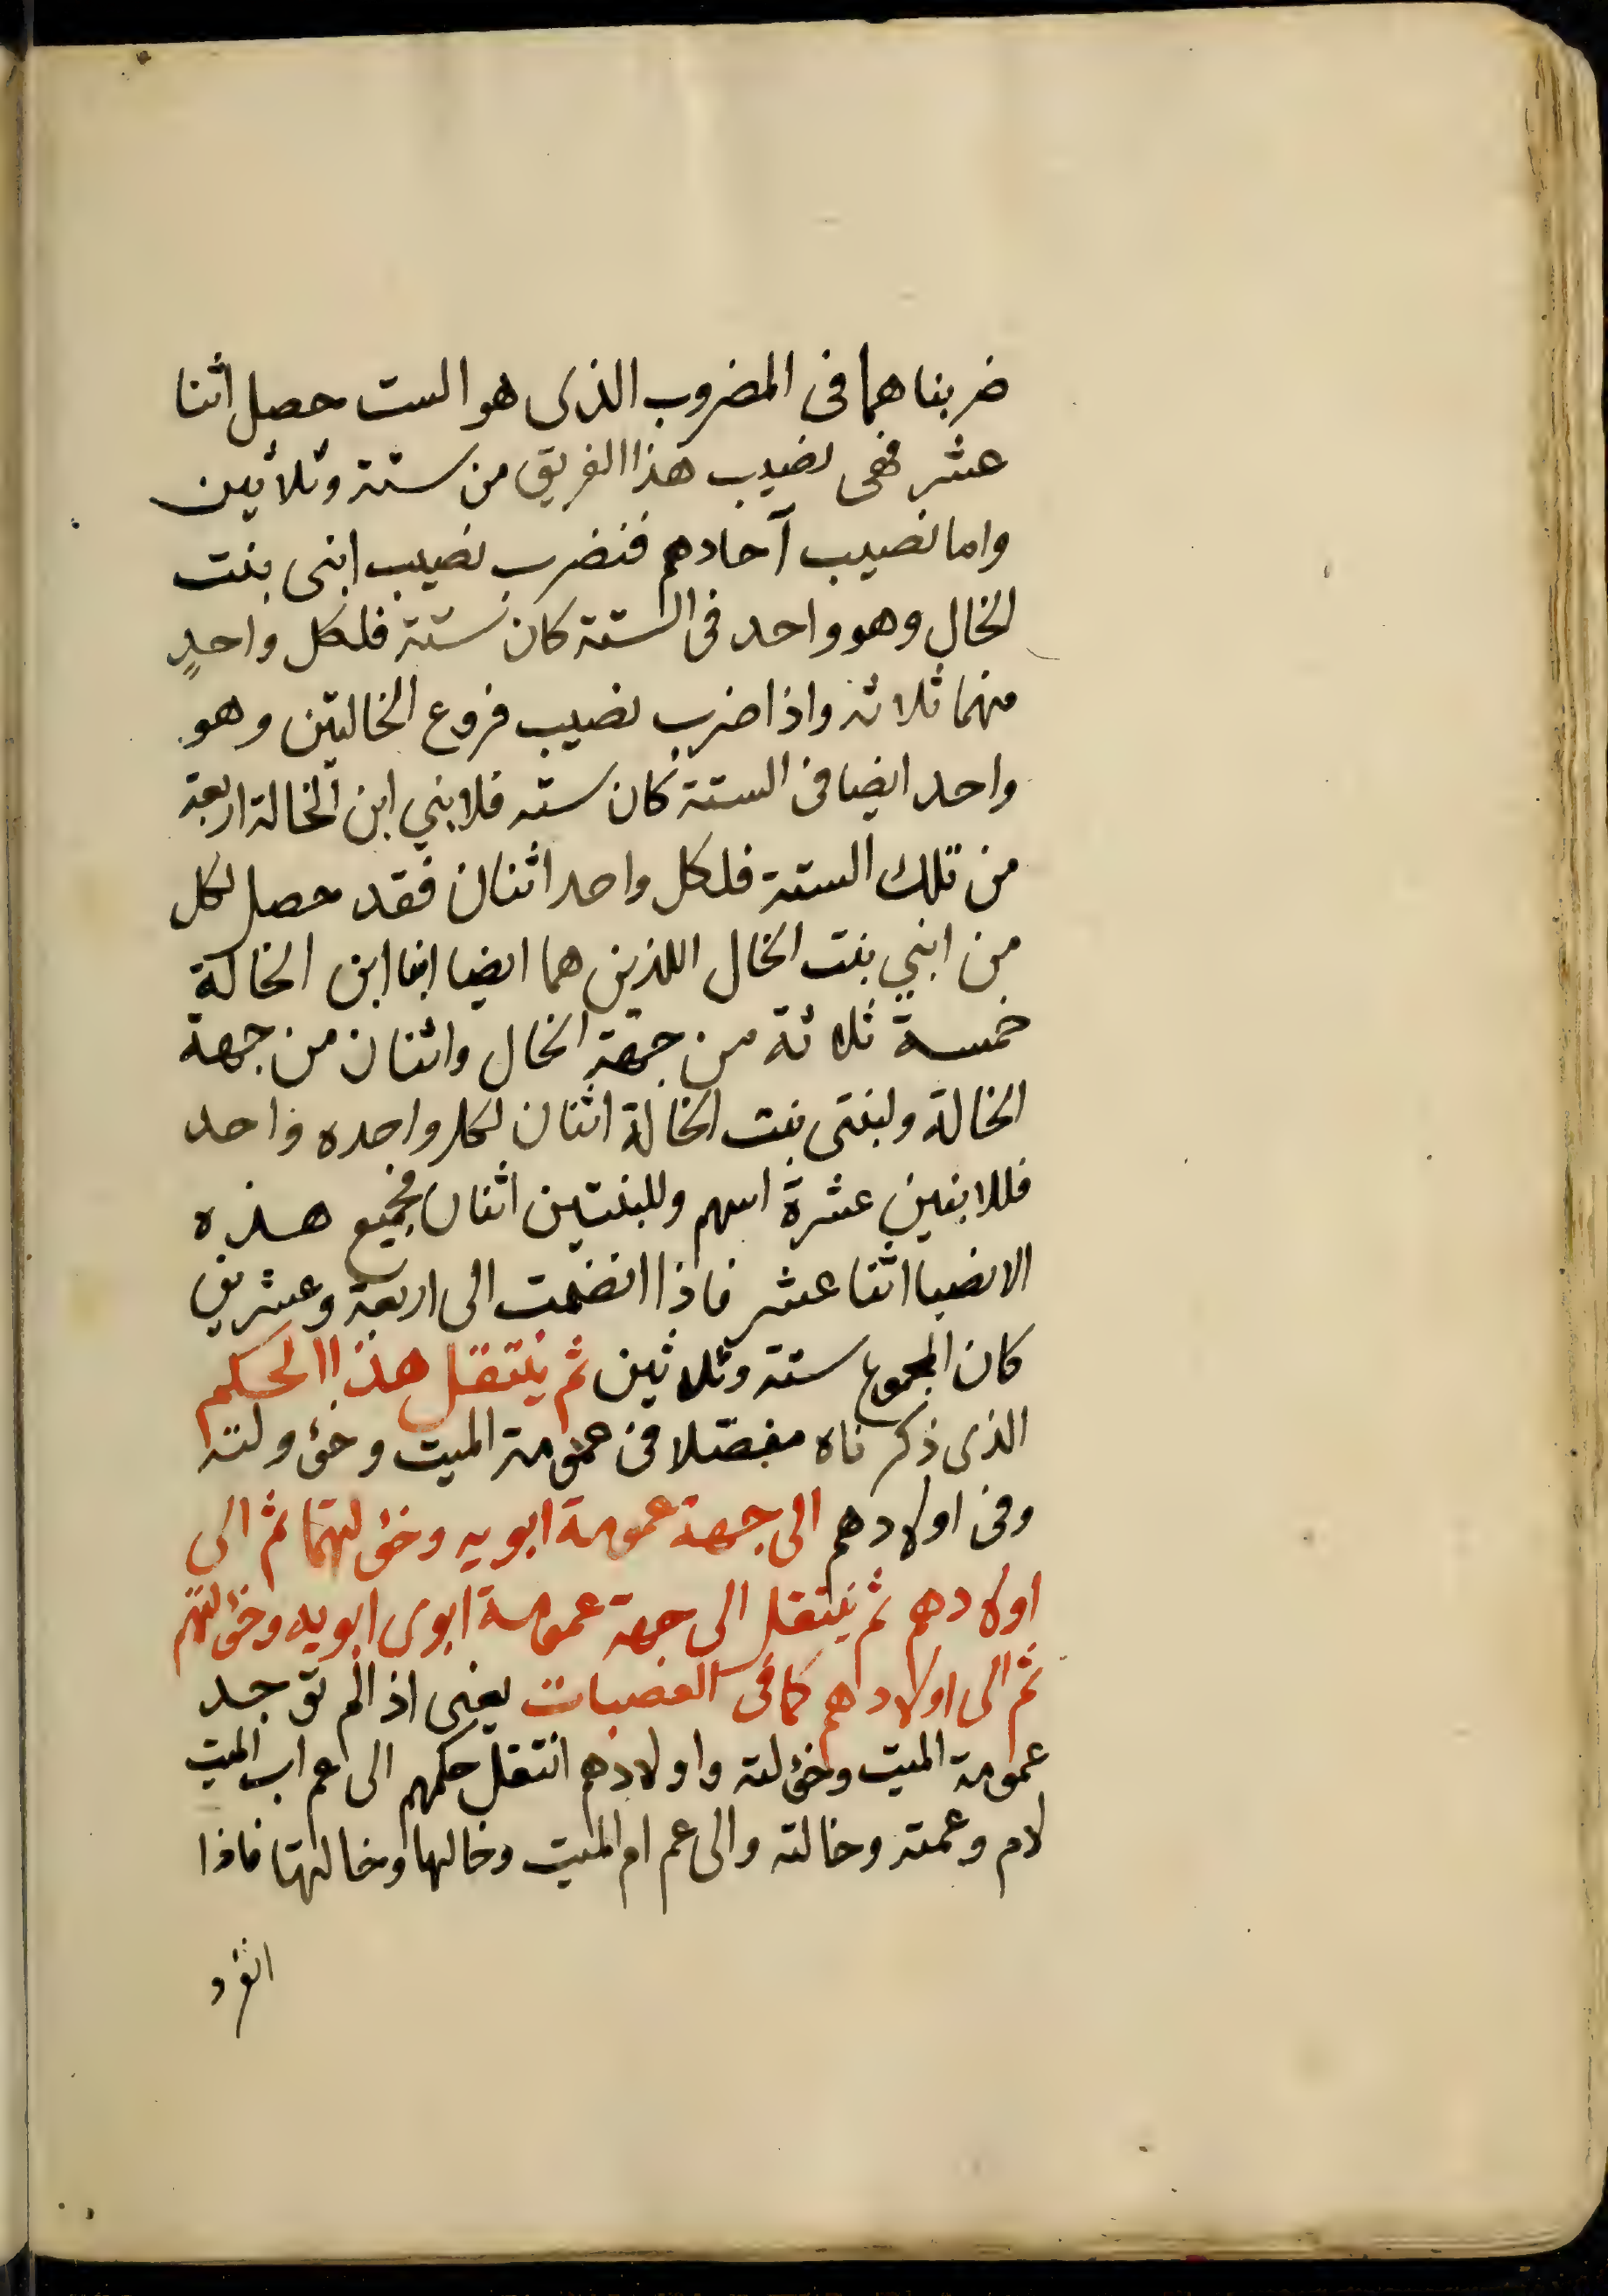 ضربناهما فى المضروب الذى هو الست حصل اثنا
عشر فهى نصيب هذا الفريق من ستة وثلاثين
واما نصيب آحادهم فنضرب نصيب ابنى بنت
الخال وهو واحد فى الستة كان ستة فلكل واحدٍ
منهما ثلاثة واذا ضرب نصيب فروع الخالتين وهو
واحد ايضا فى الستة كان سته فلابني ابن الخالة اربعة
من تلك الستة فلكل واحد اثنان فقد حصل لكل
من ابني بنت الخال اللذين هما ايضا ابنا ابن الخالة
خمسة ثلاثة من جهة الخال واثنان من جهة
الخالة ولبنتى بنت الخالة اثنان لكل واحده واحد
فللابنين عشرة اسهم وللبنتين اثنان فجميع هذه
الانصبا اثنا عشر فاذا انضمت الى اربعة وعشرين
كان المجموع ستة وثلاثين ثم ينتقل هذا الحكم
الذى ذكرناه مفصّلا فى عمومة الميت وخؤولته
وفى اولادهم الى جهة عمومة ابويه وخؤلتهما ثم الى
اولادهم ثم ينتقل الى جهة عمومة ابوى ابويه وخؤلتهم
ثم الى اولادهم كما فى العصبات يعنى اذا لم توجد
عمومة الميت وخؤلته واولادهم انتقل حكمهم الى عم اب الميت
لام وعمته وخالته والى عم ام الميت وخالها وخالتها فاذا
انفرد